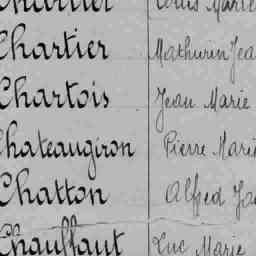 Chartier Louis Marie
Chartier Mathurin Jea
Chartois Jean Marie
Chateaugiron Pierre Marie
Chatton Alfred Ja
Chauffaut Luc Marie